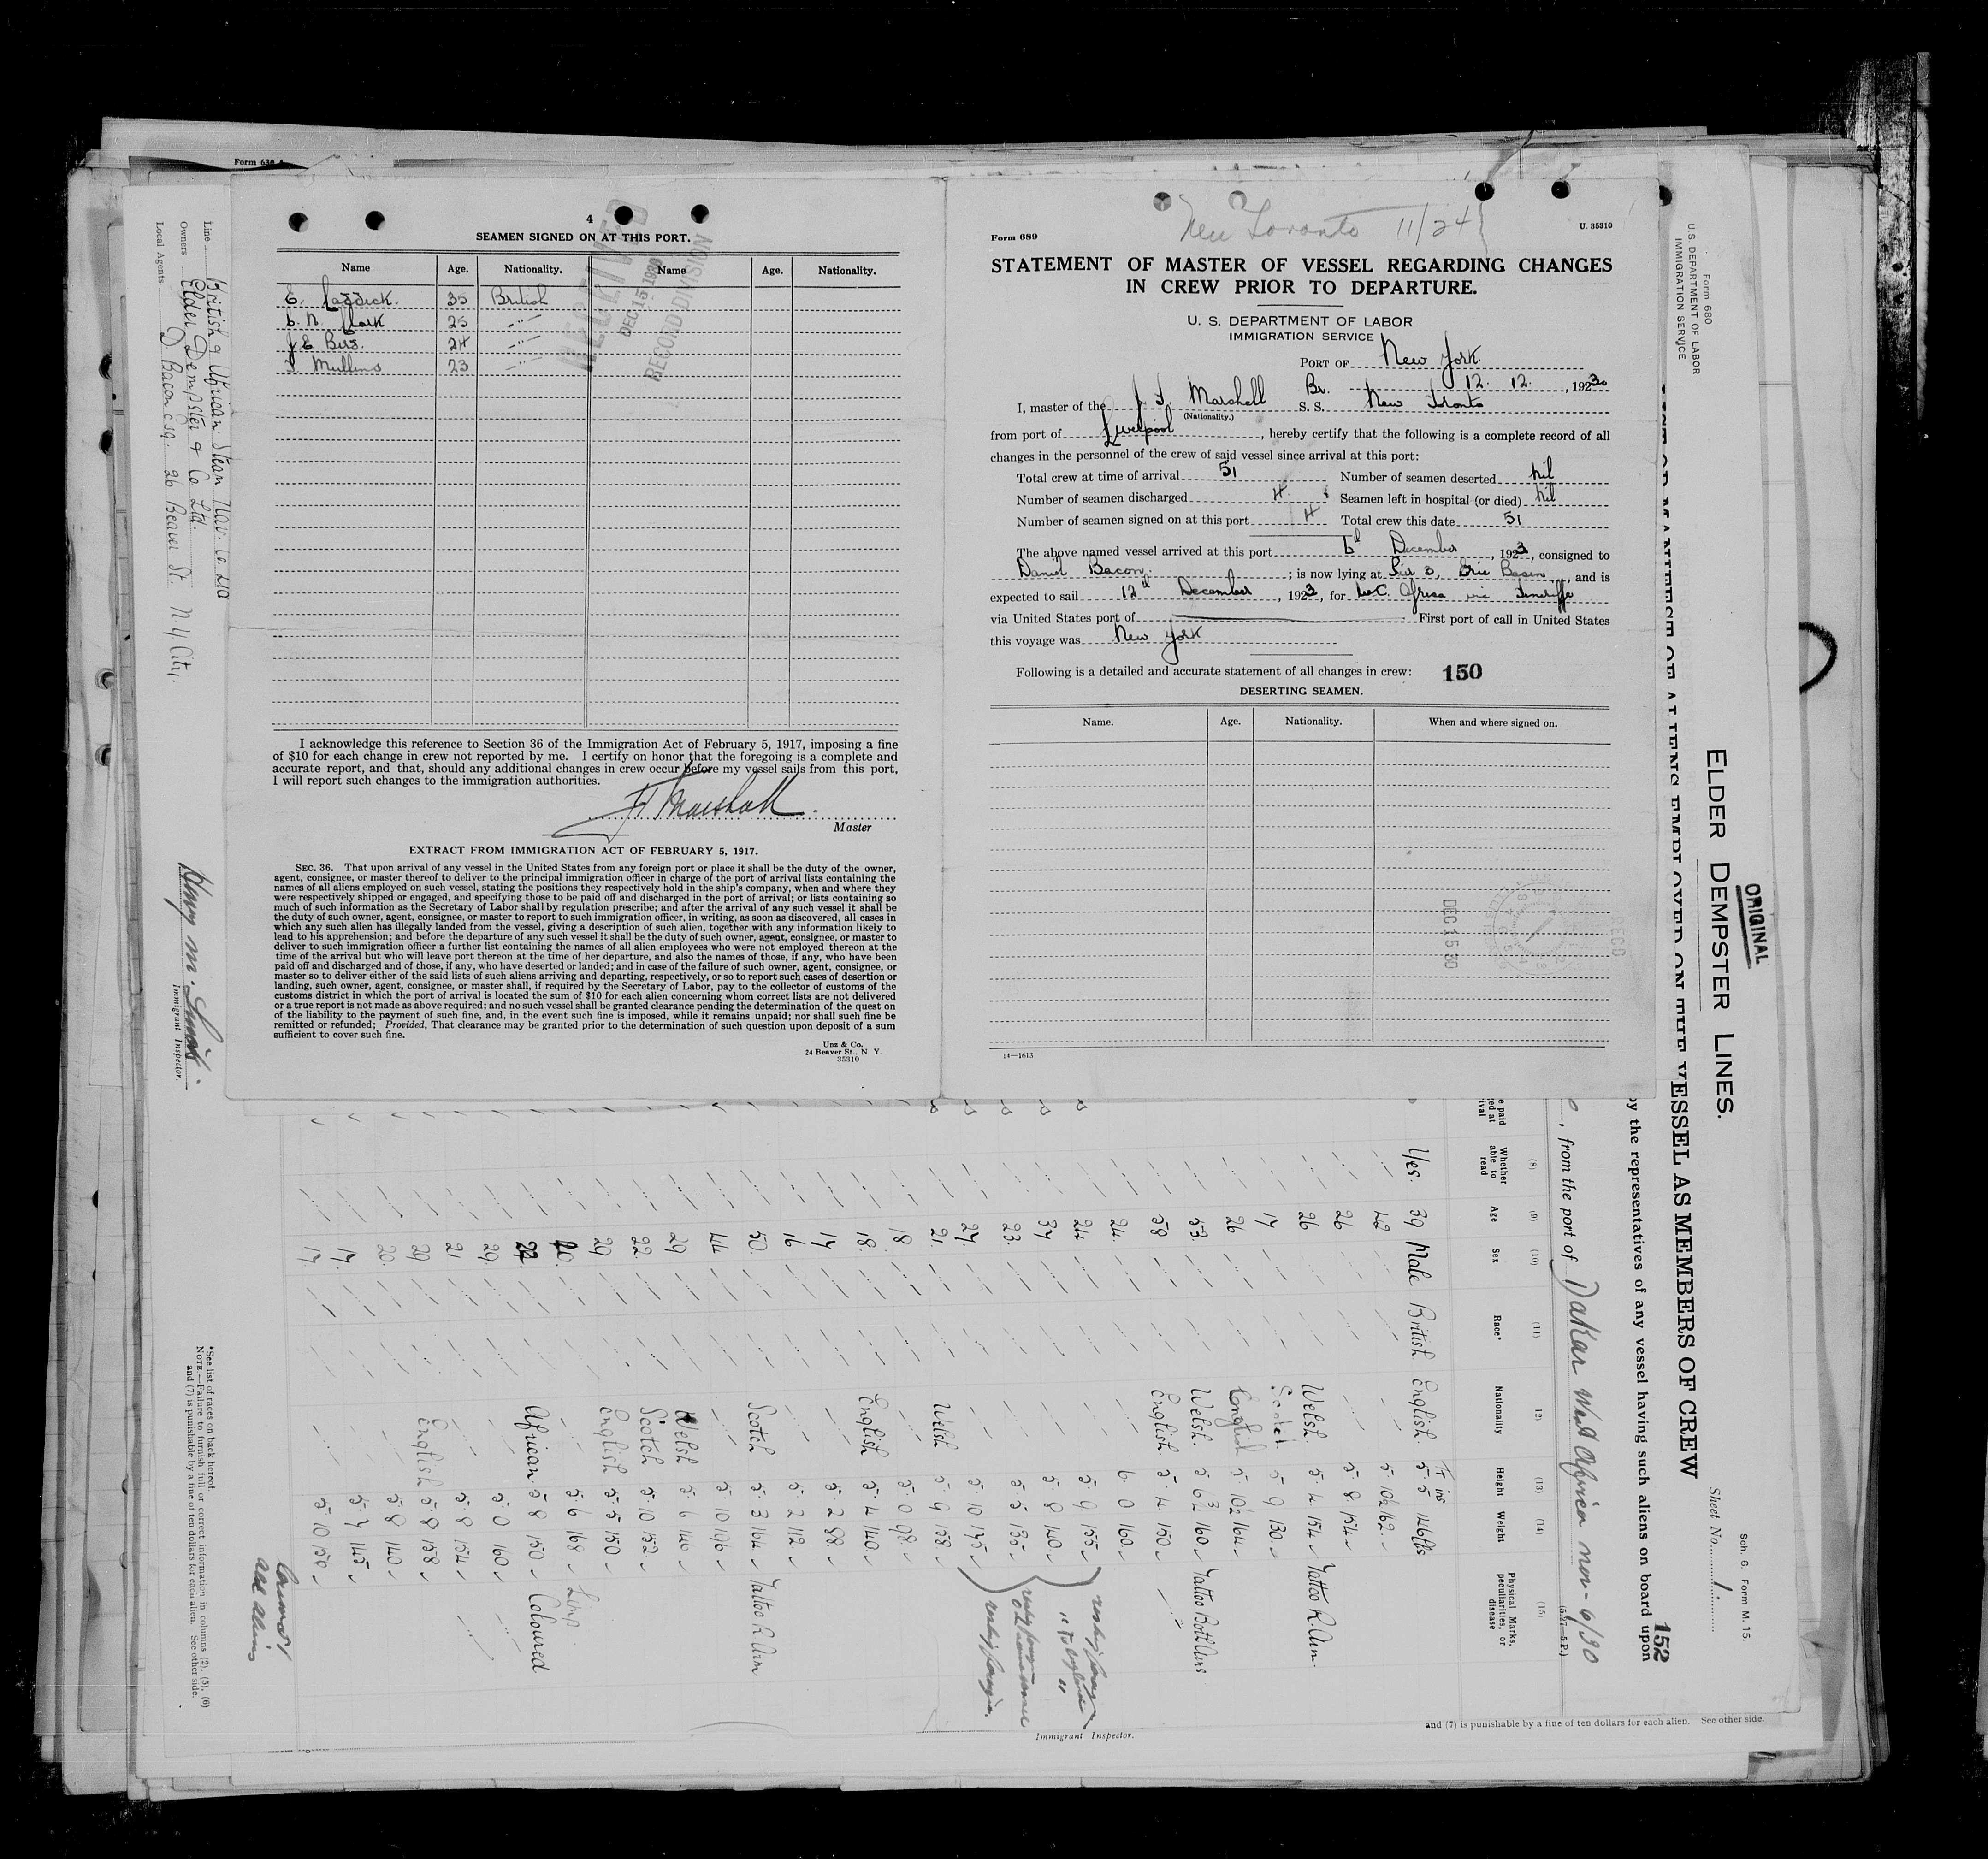 Form 630
4
SEAMEN SIGNED ON AT THIS PORT.
Name Age. Nationality. Name Age. Nationality.
35 British
C. N. Clark 25 -"-
24 -"-
Mullins 23 -"-
RECEIVED
DEC 15 1930
RECORD DIVISION
I acknowledge this reference to Section 36 of the Immigration Act of February 5, 1917, imposing a fine
of $10 for each change in crew not reported by me. I certify on honor that the foregoing is a complete and
accurate report, and that, should any additional changes in crew occur before my vessel sails from this port,
I will report such changes to the immigration authorities.
Marshall
Master
EXTRACT FROM IMMIGRATION ACT OF FEBRUARY 5, 1917.
SEC. 36. That upon arrival of any vessel in the United States from any foreign port or place it shall be the duty of the owner,
agent, consignee, or master thereof to deliver to the principal immigration officer in charge of the port of arrival lists containing the
names of all aliens employed on such vessel, stating the positions they respectively hold in the ship's company, when and where they
were respectively shipped or engaged, and specifying those to be paid off and discharged in the port of arrival; or lists containing so
much of such information as the Secretary of Labor shall by regulation prescribe; and after the arrival of any such vessel it shall be
the duty of such owner, agent, consignee, or master to report to such immigration officer, in writing, as soon as discovered, all cases in
which any such alien has illegally landed from the vessel, giving a description of such alien, together with any information likely to
lead to his apprehension; and before the departure of any such vessel it shall be the duty of such owner, agent, consignee, or master to
deliver to such immigration officer a further list containing the names of all alien employees who were not employed thereon at the
time of the arrival but who will leave port thereon at the time of her departure, and also the names of those, if any, who have been
paid off and discharged and of those, if any, who have deserted or landed; and in case of the failure of such owner, agent, consignee, or
master so to deliver either of the said lists of such aliens arriving and departing, respectively, or so to report such cases of desertion or
landing, such owner, agent, consignee, or master shall, if required by the Secretary of Labor, pay to the collector of customs of the
customs district in which the port of arrival is located the sum of $10 for each alien concerning whom correct lists are not delivered
or a true report is not made as above required; and no such vessel shall be granted clearance pending the determination of the quest on
of the liability to the payment of such fine, and, in the event such fine is imposed, while it remains unpaid; nor shall such fine be
remitted or refunded; Provided, That clearance may be granted prior to the determination of such question upon deposit of a sum
sufficient to cover such fine.
Unz & Co.
24 Beaver St., N Y.
35310
New Toronto 11/24
Form 689
U. 35310
STATEMENT OF MASTER OF VESSEL REGARDING CHANGES
IN CREW PRIOR TO DEPARTURE.
U. S. DEPARTMENT OF LABOR
IMMIGRATION SERVICE
PORT OF New York.
12. 12. , 1930
I, master of the J. F. Marshell Br. S. S. New Toronto
(Nationality.)
from port of Liverpool , hereby certify that the following is a complete record of all
changes in the personnel of the crew of said vessel since arrival at this port:
Total crew at time of arrival 51 Number of seamen deserted Nil
Number of seamen discharged 4 Seamen left in hospital (or died) Nil
Number of seamen signed on at this port 4 Total crew this date 51
The above named vessel arrived at this port 6th December , 1923, consigned to
Daniel Bacon. ; is now lying at Pier 3, Erie Basin , and is
expected to sail 12th December , 1923, for W.C. Africa via Teneriffe
via United States port of First port of call in United States
this voyage was New York
Following is a detailed and accurate statement of all changes in crew: 150
DESERTING SEAMEN.
Name. Age. Nationality. When and where signed on.
DEC 15 30
RECD
14—1613
Line British & African Steam Nav. Co. Ltd
Owners Elder Dempster & Co Ltd.
Local Agents D Bacon Esq. 26 Beaver St. N Y City.
Immigrant Inspector.
*See list of races on back hereof.
NOTE.—Failure to furnish full or correct information in columns (2), (5), (6)
and (7) is punishable by a fine of ten dollars for each alien. See other side.
Form 680
U.S. DEPARTMENT OF LABOR
IMMIGRATION SERVICE
ELDER DEMPSTER LINES.
ORIGINAL
Sch. 6. Form M. 15.
Sheet No. 1
LIST OR MANIFEST OF ALIENS EMPLOYED ON THE VESSEL AS MEMBERS OF CREW
152
by the representatives of any vessel having such aliens on board upon
(5/27—5 P.)
, from the port of Dakar West Africa nov- 9/30
(8) (9) (10) (11) 12) (13) (14) (15)
Whether able to read Age Sex Race* Nationality Height Weight Physical Marks, peculiarities, or disease
Yes. 39 Male British English. 5 5 146lbs
42 5 10½ 162
26 5 8 154
26 Welsh. 5 4 154 Tattoo R. Arm.
17 5 9 130
26 English 5 10½ 164
53 Welsh. 5 6¾ 160 Tattoo Both Arms
58 English 5 4 150
24 6 0 160
24 5 9 155
37 5 8 140
23 5 5 135
27 5 10 175
21 Welsh 5 9 158
18 5 0 98
18 English 5 4 140
17 5 2 88
16 5 2 112
50 Scotch 5 3 164 Tattoo R Arm
44 5 10 196
29 Welsh 5 6 140
22 Scotch 5 10 152
29 English 5 5 150
20 5 6 168 Limp.
22 African 5 8 150 Coloured
29 5 0 160
21 5 8 154
29 English 5 8 158
20 5 8 140
17 5 7 145
17 5 10 158
Immigrant Inspector.
and (7) is punishable by a fine of ten dollars for each alien. See other side.